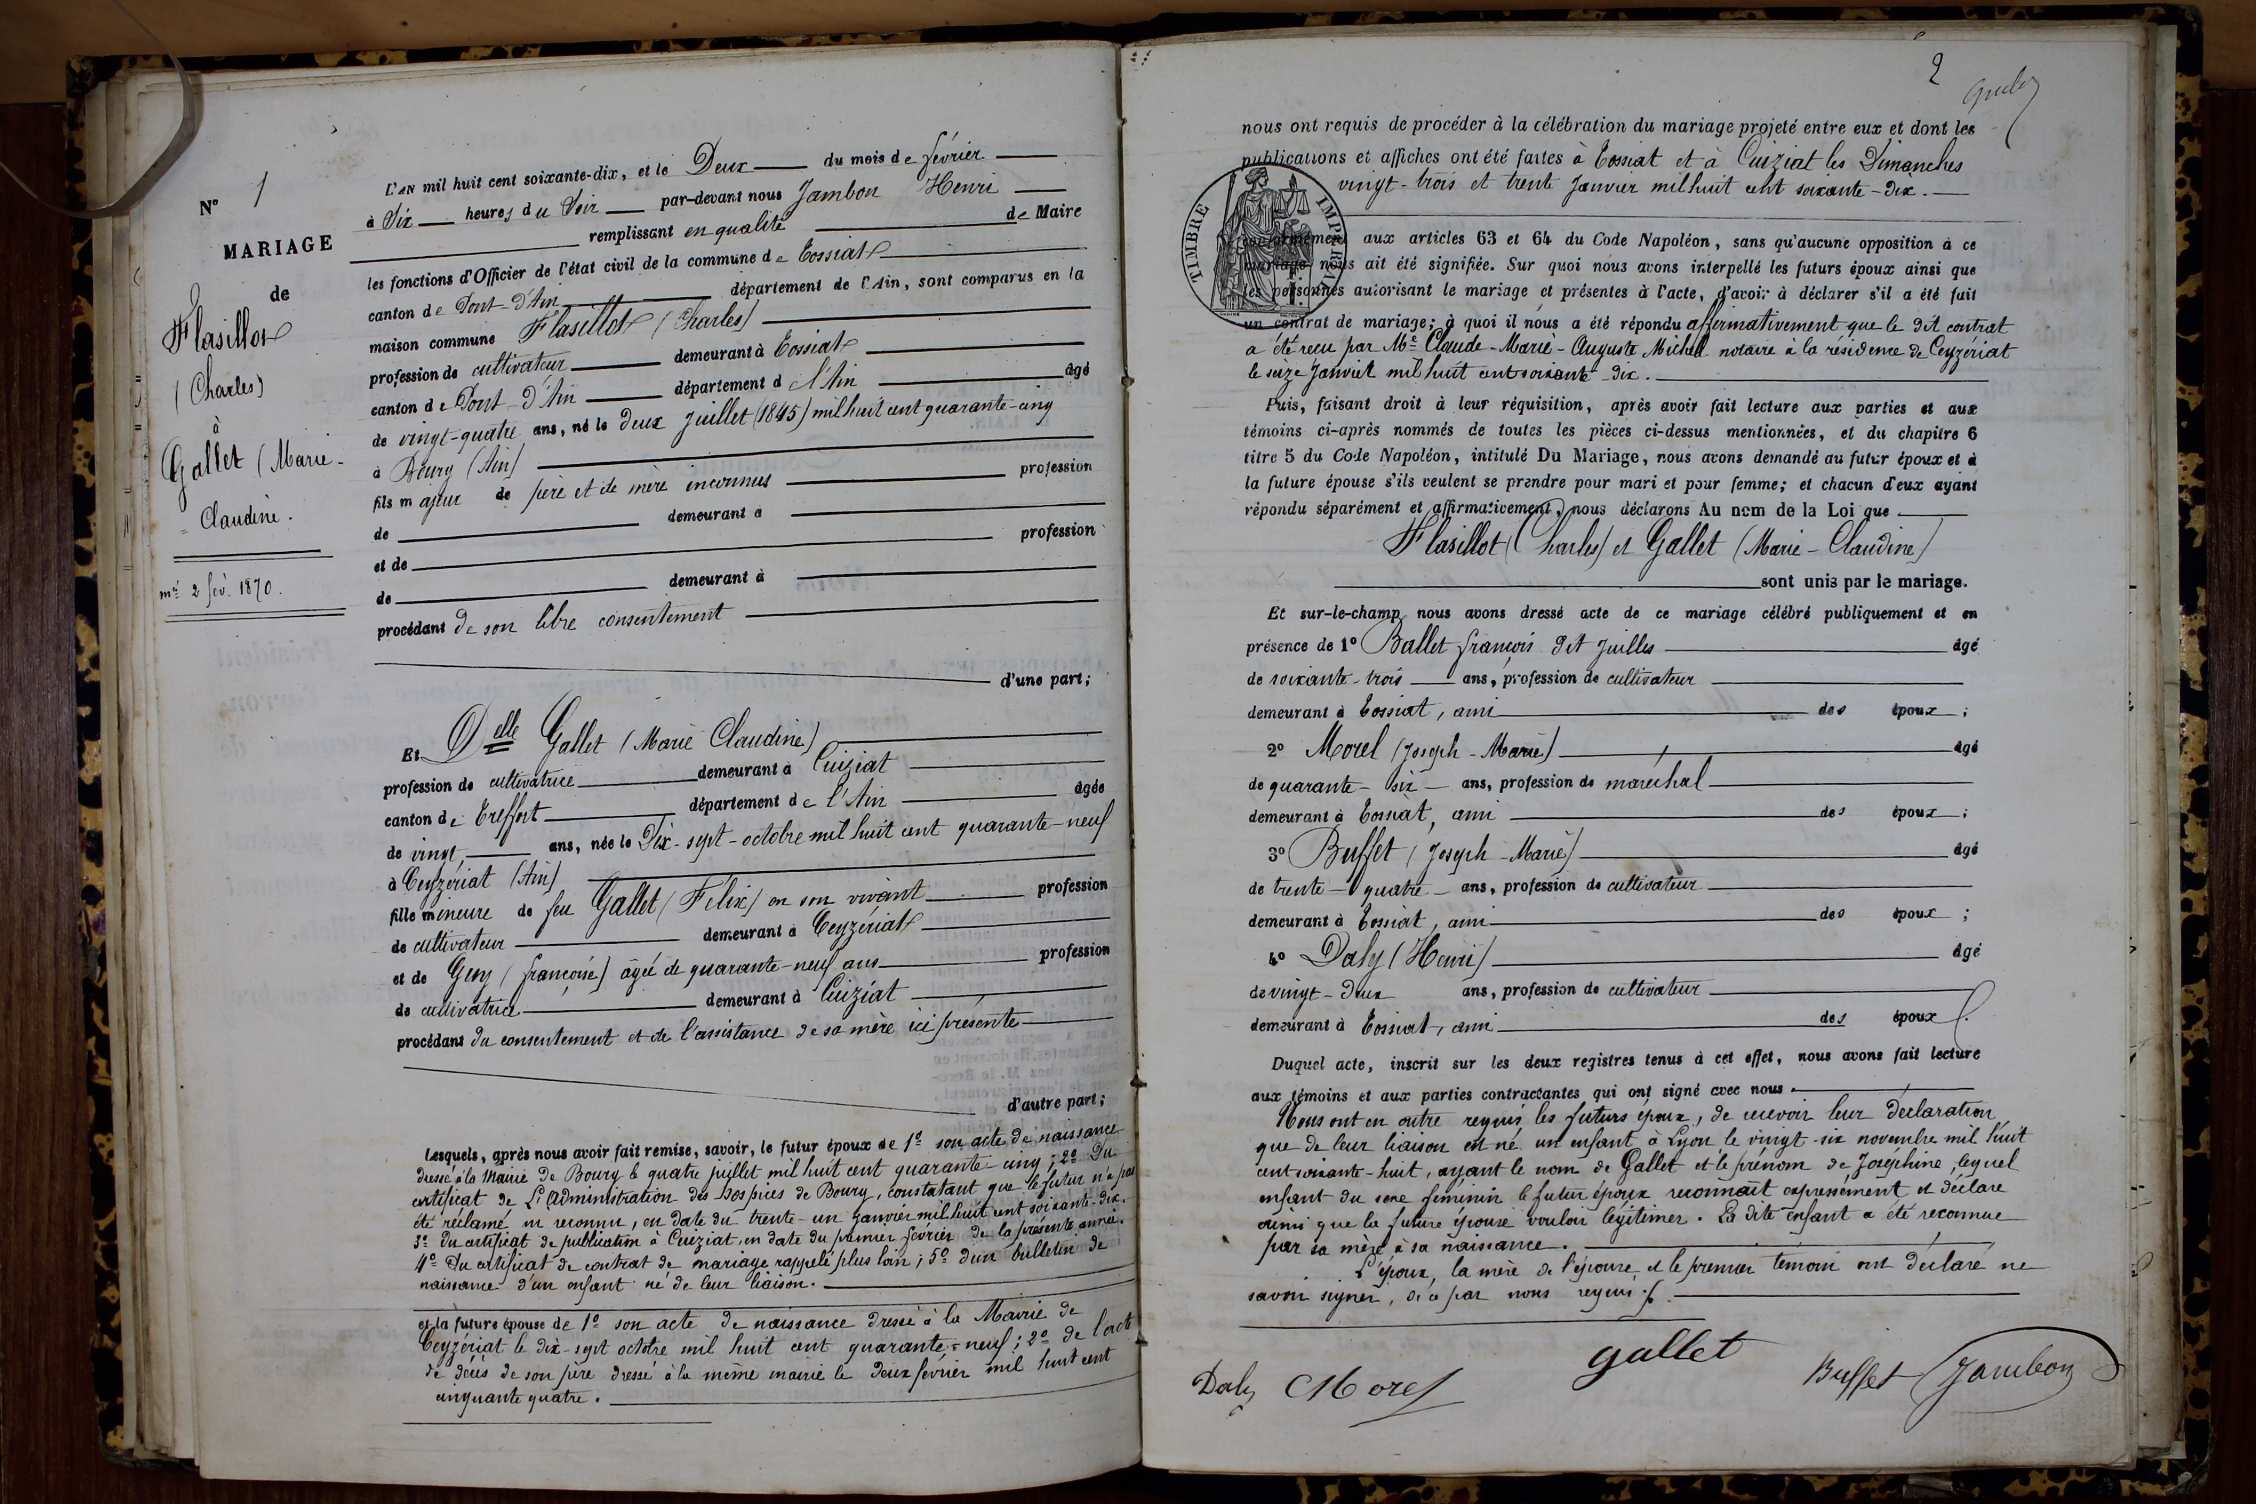 N° 1
MARIAGE
de
Flasillot
(Charles)
à
Gallet (Marie-
Claudine.
mé 2 fév. 1870.
L'AN mil huit cent soixante-dix, et le Deux du mois de février
à Six heures du Soir par-devant nous Jambon Henri
remplissant en qualité de Maire
les fonctions d'Officier de l'état civil de la commune de Tossiat
canton de Pont-d'Ain département de l'Ain, sont comparus en la
maison commune Flasillot (Charles)
profession de cultivateur demeurant à Tossiat
canton de Pont-d'Ain département d l'Ain âgé
de vingt-quatre ans, né le deux juillet (1845) mil huit cent quarante-cinq
à Bourg (Ain)
fils majeur de père et de mère inconnus profession
de demeurant à
et de profession
de demeurant à
procédant de son libre consentement
d'une part;
Et Delle Gallet (Marie Claudine)
profession de cultivatrice demeurant à Cuiziat
canton de Treffort département de l'Ain âgée
de vingt ans, née le Dix-sept-octobre mil huit cent quarante-neuf
à Ceyzériat (Ain)
fille mineure de feu Gallet (Félix) en son vivant profession
de cultivateur demeurant à Ceyzériat
et de Guy (françoise) âgée de quarante-neuf ans profession
de cultivatrice demeurant à Cuiziat
procédant du consentement et de l'assistance de sa mère ici présente
d'autre part;
Lesquels, après nous avoir fait remise, savoir, le futur époux de 1° son acte de naissance
dressé à la Mairie de Bourg le quatre juillet mil huit cent quarante-cinq; 2° Du
certificat de L'Administration des hospices de Bourg, constatant que le futur n'a pas
été réclamé ni reconnu, en date du trente-un janvier mil huit cent soixante-dix.
3° Du certificat de publication à Cuiziat, en date du premier février de la présente année.
4° Du certificat de contrat de mariage rappelé plus loin; 5° d'un bulletin de
naissance d'un enfant né de leur liaison.
et la future épouse de 1° son acte de naissance dressé à la Mairie de
Ceyzériat le dix-sept octobre mil huit cent quarante-neuf; 2° de l'acte
de décès de son père dressé à la même mairie le deux février mil huit cent
cinquante quatre.
2
nous ont requis de procéder à la célébration du mariage projeté entre eux et dont les
publications et affiches ont été faites à Tossiat et à Cuiziat les Dimanches
vingt-trois et trente Janvier mil huit cent soixante-dix.
TIMBRE IMPERIAL
conformément aux articles 63 et 64 du Code Napoléon, sans qu'aucune opposition à ce
mariage nous ait été signifiée. Sur quoi nous avons interpellé les futurs époux ainsi que
les personnes autorisant le mariage et présentes à l'acte, d'avoir à déclarer s'il a été fait
un contrat de mariage; à quoi il nous a été répondu affirmativement que le dit contrat
a été reçu par Me Claude-Marie-Auguste Michel notaire à la résidence de Ceyzériat
le seize Janvier mil huit cent soixante-dix.
Puis, faisant droit à leur réquisition, après avoir fait lecture aux parties et aux
témoins ci-après nommés de toutes les pièces ci-dessus mentionnées, et du chapitre 6
titre 5 du Code Napoléon, intitulé Du Mariage, nous avons demandé au futur époux et à
la future épouse s'ils veulent se prendre pour mari et pour femme; et chacun d'eux ayant
répondu séparément et affirmativement, nous déclarons Au nom de la Loi que
Flasillot (Charles) et Gallet (Marie-Claudine)
sont unis par le mariage.
Et sur-le-champ nous avons dressé acte de ce mariage célébré publiquement et en
présence de 1° Ballet françois dit Juilles âgé
de soixante-trois ans, profession de cultivateur
demeurant à Tossiat, ami des époux;
2° Morel (Joseph-Marie) âgé
de quarante-six ans, profession de maréchal
demeurant à Tossiat, ami des époux;
3° Buffet (Joseph-Marie) âgé
de trente-quatre ans, profession de cultivateur
demeurant à Tossiat, ami des époux;
4° Daly (Henri) âgé
de vingt-deux ans, profession de cultivateur
demeurant à Tossiat, ami des époux.
Duquel acte, inscrit sur les deux registres tenus à cet effet, nous avons fait lecture
aux témoins et aux parties contractantes qui ont signé avec nous.
Nous ont en outre requis les futurs époux, de recevoir leur déclaration
que de leur liaison est né un enfant à Lyon le vingt-six novembre mil huit
cent soixante-huit, ayant le nom de Gallet et le prénom de Joséphine, lequel
enfant du sexe féminin le futur époux reconnaît expressément et déclare
ainsi que la future épouse vouloir légitimer. La dite enfant a été reconnue
par sa mère à sa naissance.
L'époux, la mère de l'épouse, et le premier témoin ont déclaré ne
savoir signer, de ce par nous requis.
gallet
Daly Morel Buffet Jambon